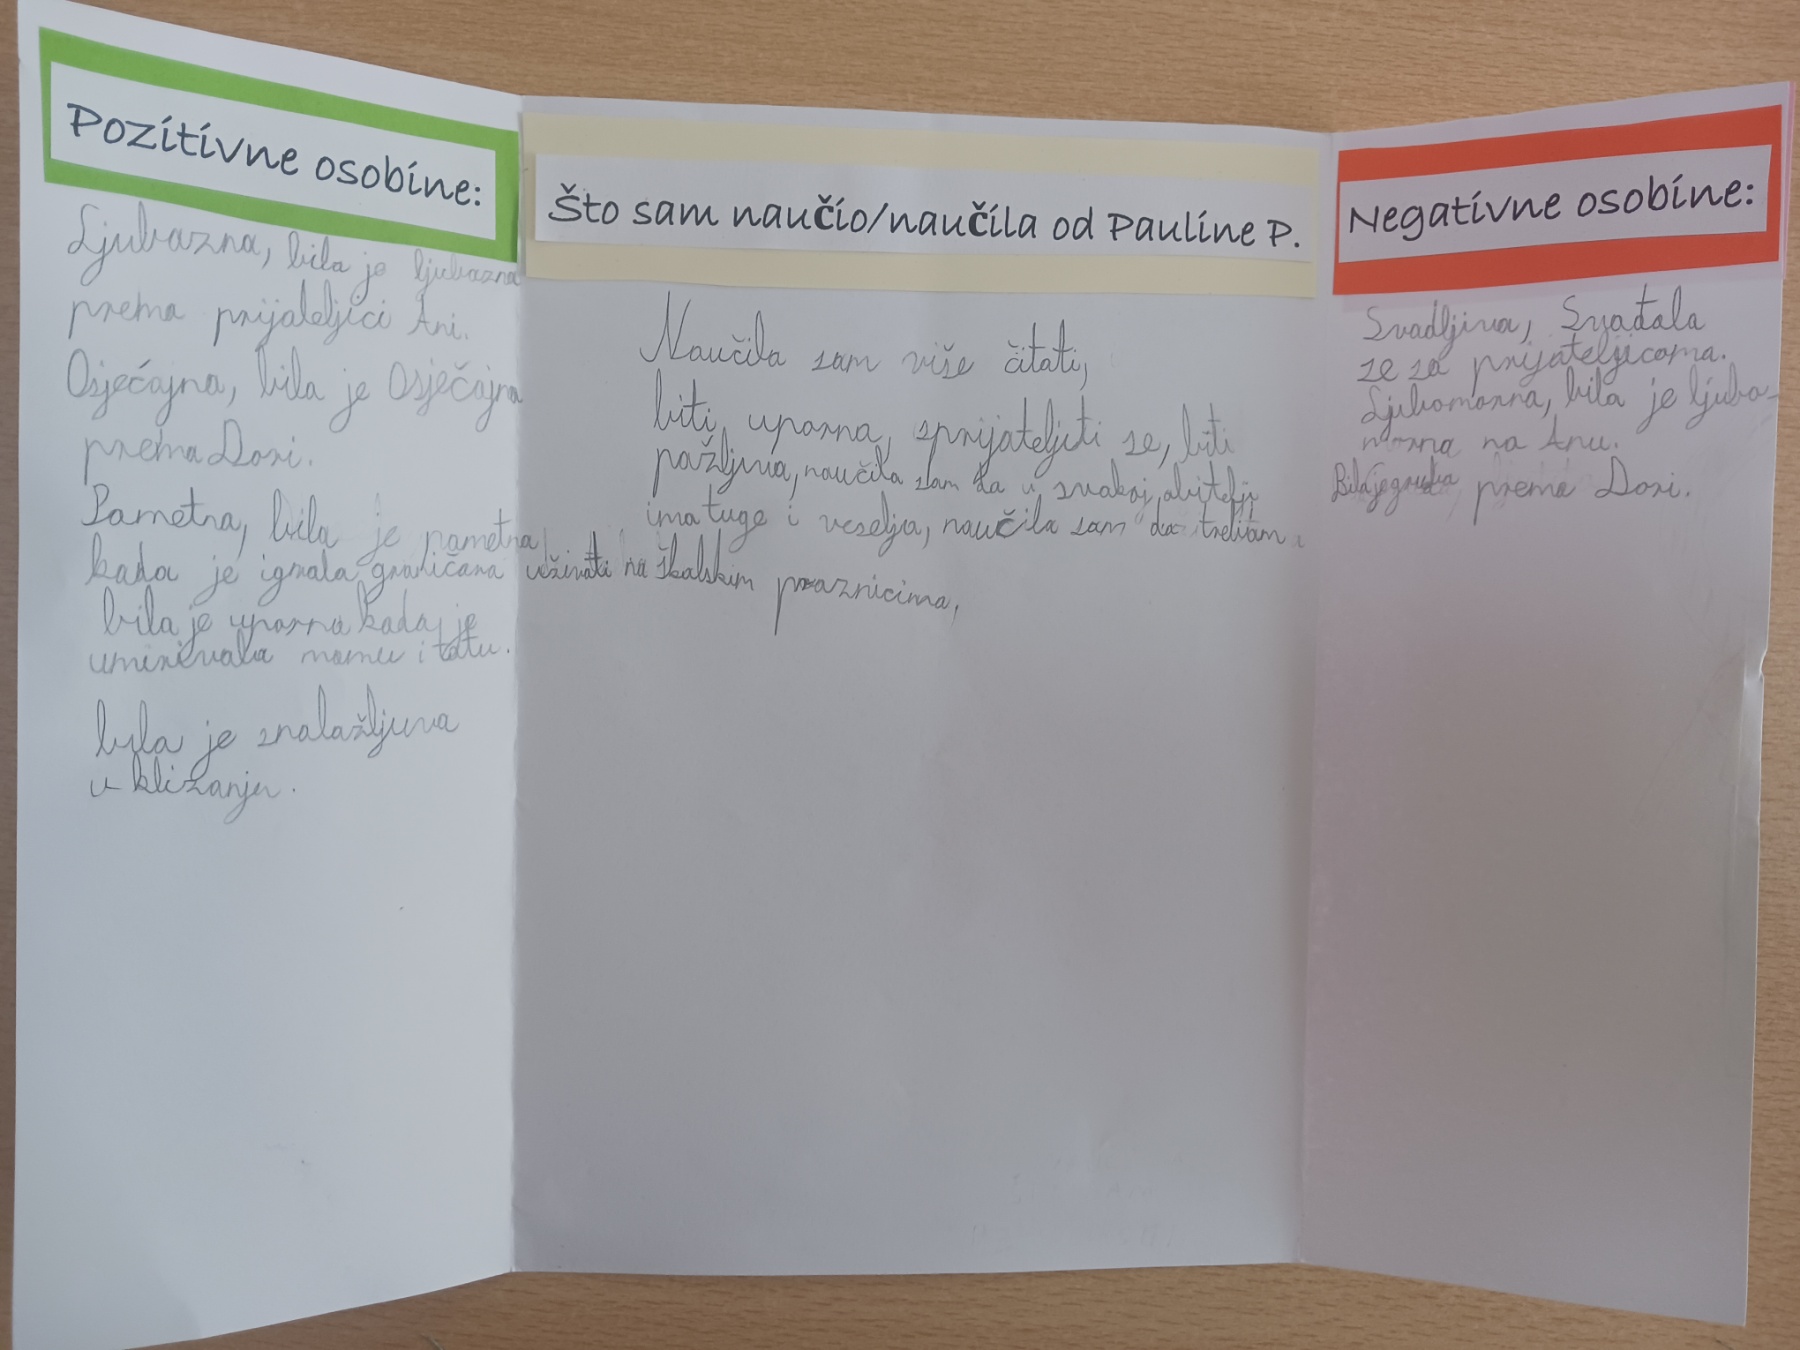 Pozitivne osobine:
Ljubazna, bila je ljubazna
prema prijateljici Ani.
Osjećajna, bila je Osječajna
prema Dori.
Pametna, bila je pametna
kada je igrala graničara
bila je uporna kada je
umirivala mamu i tatu.
bila je snalažljiva
u klizanju.
Što sam naučio/naučila od Pauline P.
Naučila sam više čitati,
biti uporna, sprijateljiti se, biti
pažljiva, naučila sam da u svakoj obitelji
ima tuge i veselja, naučila sam da trebam
uživati na školskim praznicima,
Negativne osobine:
Svadljiva, Svađala
se sa prijateljicama.
Ljubomorna, bila je ljubo-
morna na Anu.
Bila je gruba prema Dori.